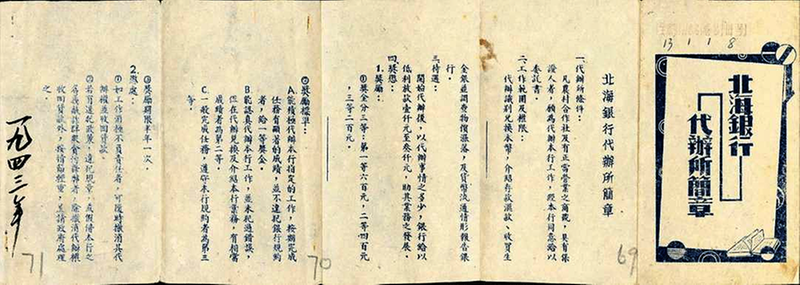 13 1 1 8
北海銀行
代辦所簡章
69
北海銀行代辦所簡章
一、代辦條件：
凡農村合作社及有正當營業之商號，具有保
證人者，願為代辦本行工作，經本行同意給以
委託書。
二、工作範圍及權限：
代辦識別兌換本幣，介紹存款滙款、收買生
金銀並調查物價漲落，及貨幣流通情形報告銀
行。
三、待遇：
開始代辦後，以代辦事情之多少，銀行給以
低利放款壹仟元至叁仟元，助其業務之發展。
四、獎懲：
1.獎勵：
①獎金分三等：第一等六百元，二等四百元
，三等二百元。
70
②獎勵標準：
A.能積極代辦本行指定的工作，按期完成
任務有顯著的成績，並不違犯銀行規約
者，給一等獎金。
B.能認真代辦本行工作，並未犯過錯誤，
但在代辦兌換及介紹本行業務，有相當
成績者為第二等。
C.一般完成任務，遵守本行規約者為第三
等。
③獎勵期限半年一次。
2.懲處：
①如工作消極不負責任者，可隨時撤消其代
辦權並收回貸款。
②若有違犯政策，違犯規章，或假借本行之
名義欺詐群眾貪污舞弊者，除撤消代辦權
收回貸款外，按情節輕重，呈請政府處理
之。
71
一九四三年